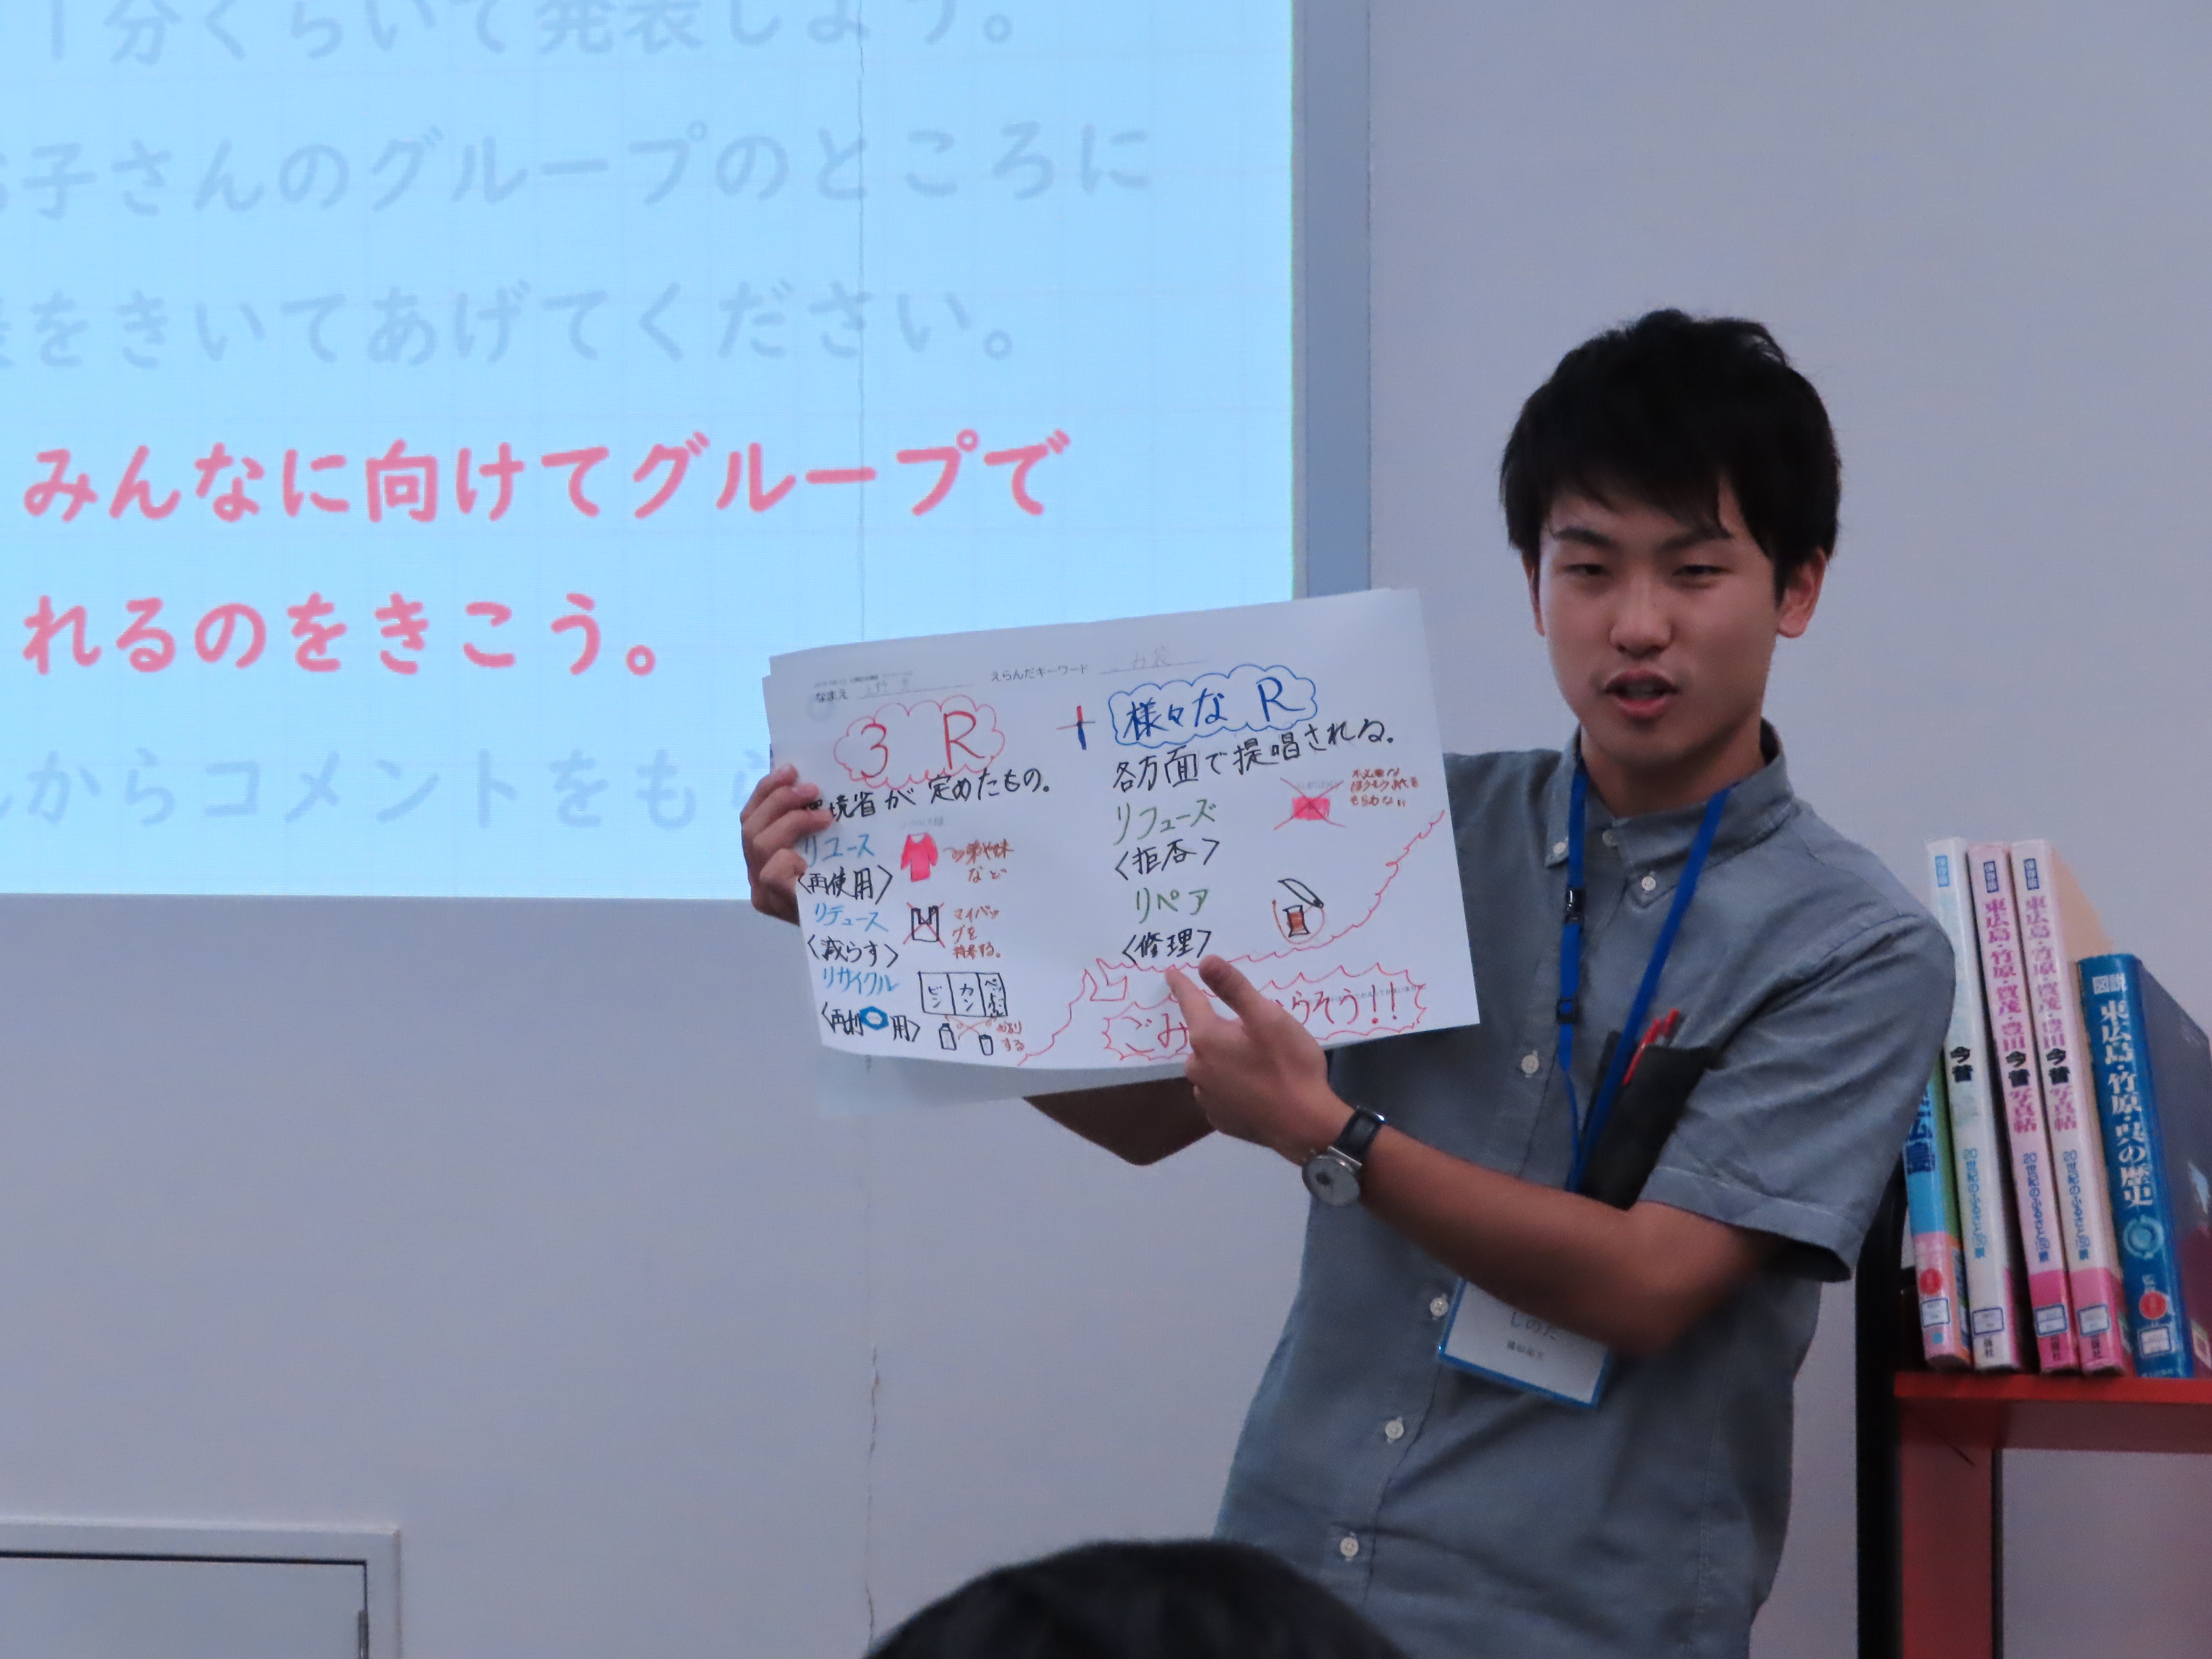 1分くらいで発表しよう。
子さんのグループのところに
をきいてあげてください。
みんなに向けてグループで
れるのをきこう。
からコメントをも
なまえ
えらんだキーワード ごみ袋
3R
環境省が定めたもの。
リユース
〈再使用〉
など
リデュース
〈減らす〉
マイバッ
グを
持参する。
リサイクル
〈再利用〉
ビン
カン
する
+
様々なR
各方面で提唱される。
リフューズ
〈拒否〉
もらわない
リペア
〈修理〉
ごみ
らそう!!
しのだ
広島
保存版
今昔
20世紀のふるさと沿線
保存版
東広島・竹原・賀茂・豊田今昔写真帖
保存版
東広島・竹原・賀茂・豊田今昔写真帖
図説
東広島・竹原・呉の歴史